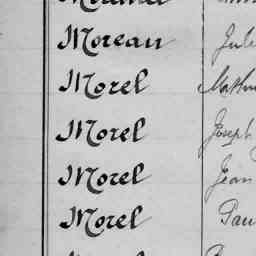 Moreau Jule
Morel
Morel Joseph
Morel Jean
Morel Pau